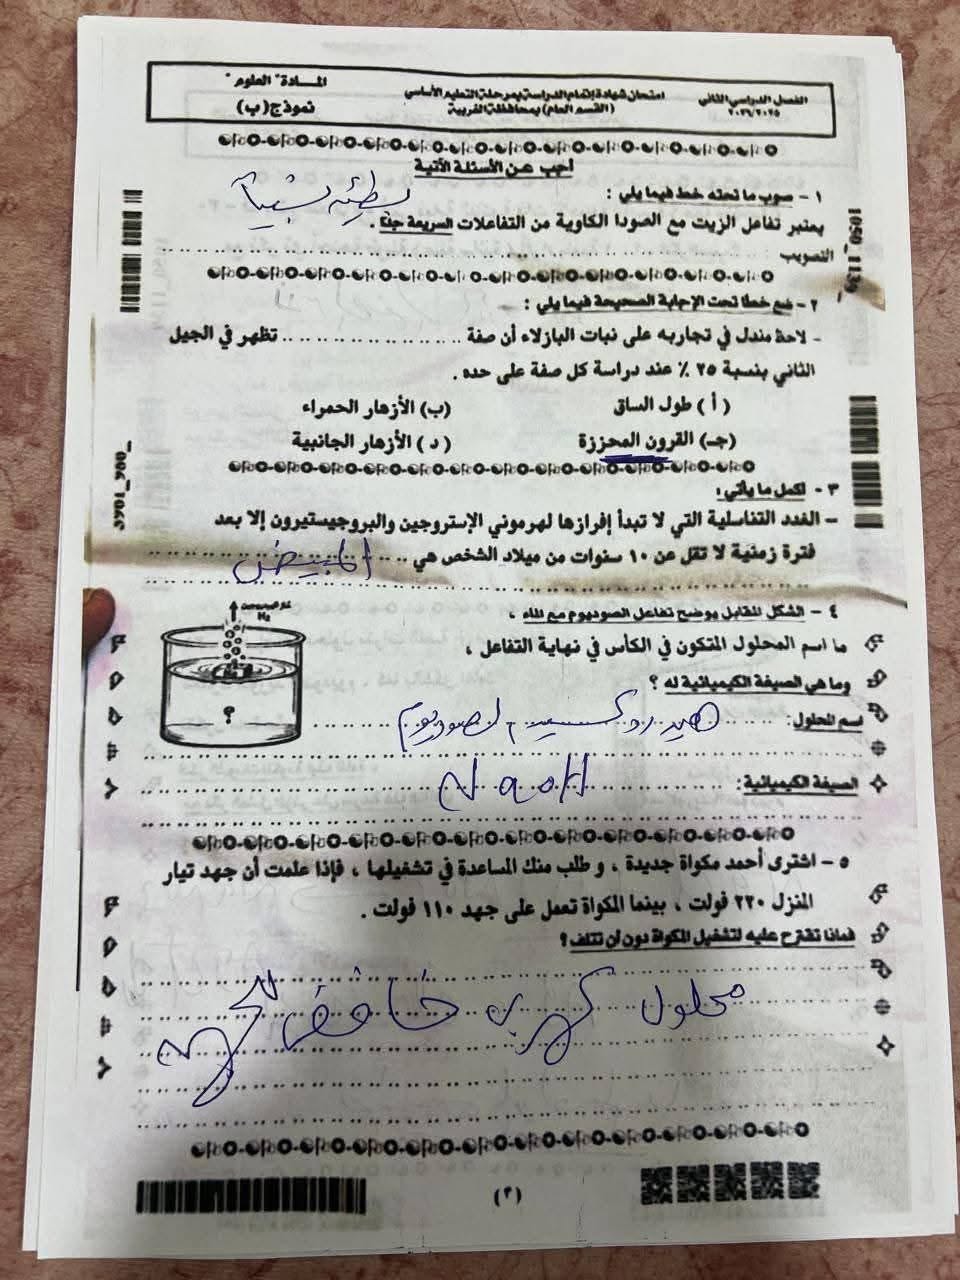 الفصل الدراسي الثاني
٢٠٢٦/٢٠٢٥
امتحان شهادة إتمام الدراسة بمرحلة التعليم الأساسي
(القسم العام) بمحافظة الغربية
المادة" العلوم "
نموذج(ب)
أجب عن الأسئلة الآتية
١ - صوب ما تحته خط فيما يلي :
بطيئه نسبيا
يعتبر تفاعل الزيت مع الصودا الكاوية من التفاعلات السريعة جدًا .
التصويب
٢ - ضع خطا تحت الإجابة الصحيحة فيما يلي :
- لاحظ مندل في تجاربه على نبات البازلاء أن صفة .................. تظهر في الجيل
الثاني بنسبة ٢٥ ٪ عند دراسة كل صفة على حده .
( أ ) طول الساق
(ب) الأزهار الحمراء
(جـ) القرون المحززة
( د ) الأزهار الجانبية
٣ - اكمل ما يأتي :
- الغدد التناسلية التي لا تبدأ إفرازها لهرموني الإستروجين والبروجيستيرون إلا بعد
فترة زمنية لا تقل عن ١٠ سنوات من ميلاد الشخص هي المبيض
٤ - الشكل المقابل يوضح تفاعل الصوديوم مع الماء ،
H₂
؟
ما اسم المحلول المتكون في الكأس في نهاية التفاعل ،
وما هي الصيغة الكيميائية له ؟
اسم المحلول: هيدروكسيد الصوديوم
الصيغة الكيميائية: NaOH
٥ - اشترى أحمد مكواة جديدة ، و طلب منك المساعدة في تشغيلها ، فإذا علمت أن جهد تيار
المنزل ٢٢٠ فولت ، بينما المكواة تعمل على جهد ١١٠ فولت .
فماذا تقترح عليه لتشغيل المكواة دون ان تتلف ؟
محلول كهربى خافض للجهد
(٢)